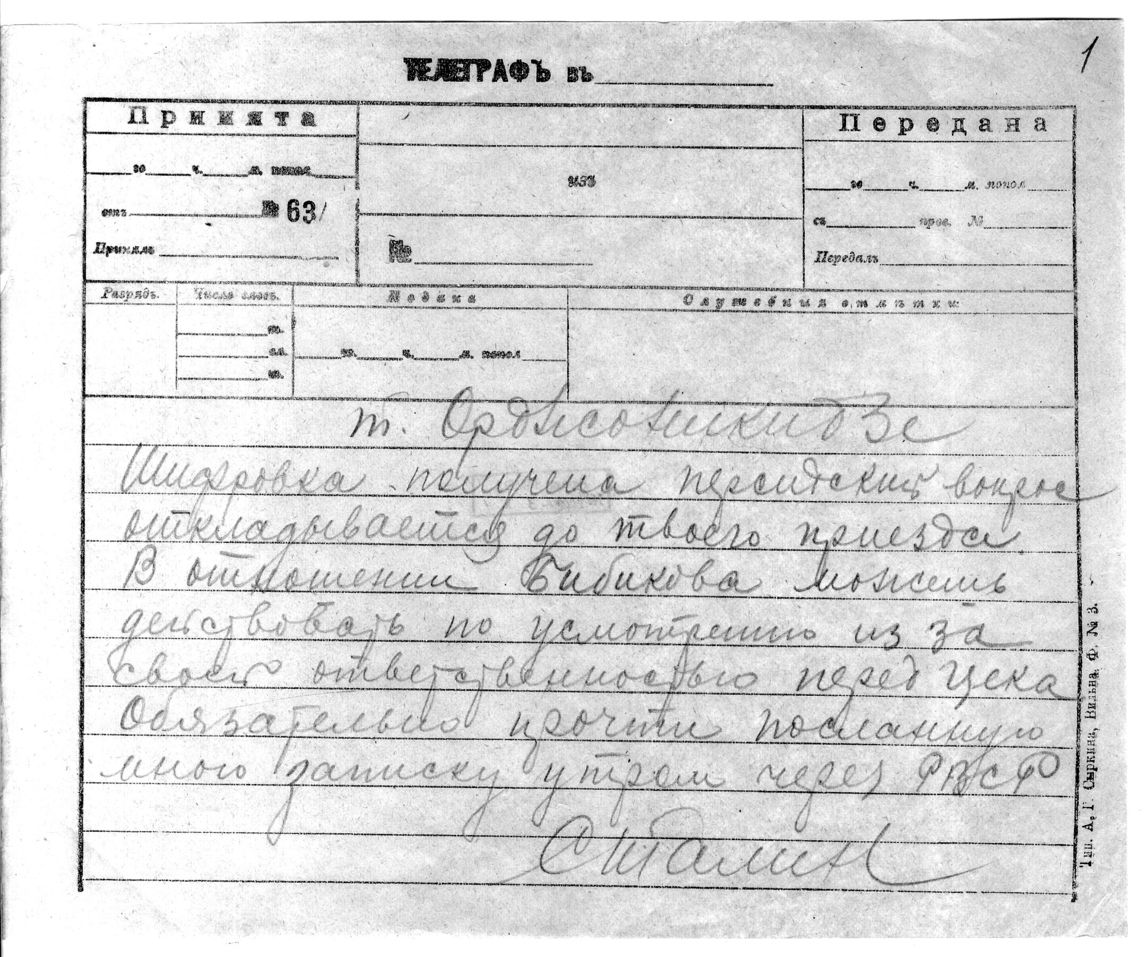 1
ТЕЛЕГРАФЪ въ
Принята
го ч. м. попол
отъ № 63/
Принялъ
изъ
№
Передана
го ч. м. попол
съ пров. №
Передалъ
Разрядъ. Число словъ. Подача Служебныя отмѣтки:
го. ч. м. попол
т. Орджоникидзе
Шифровка получена персидский вопрос
откладывается до твоего приезда.
В отношении Бибикова можешь
действовать по усмотрению из за
своей ответственностью перед Цека
Обязательно прочти посланную
мною записку утром через РВСФ
Сталин
Тип. А. Г. Сыркина, Вильна. Ф. № 3.